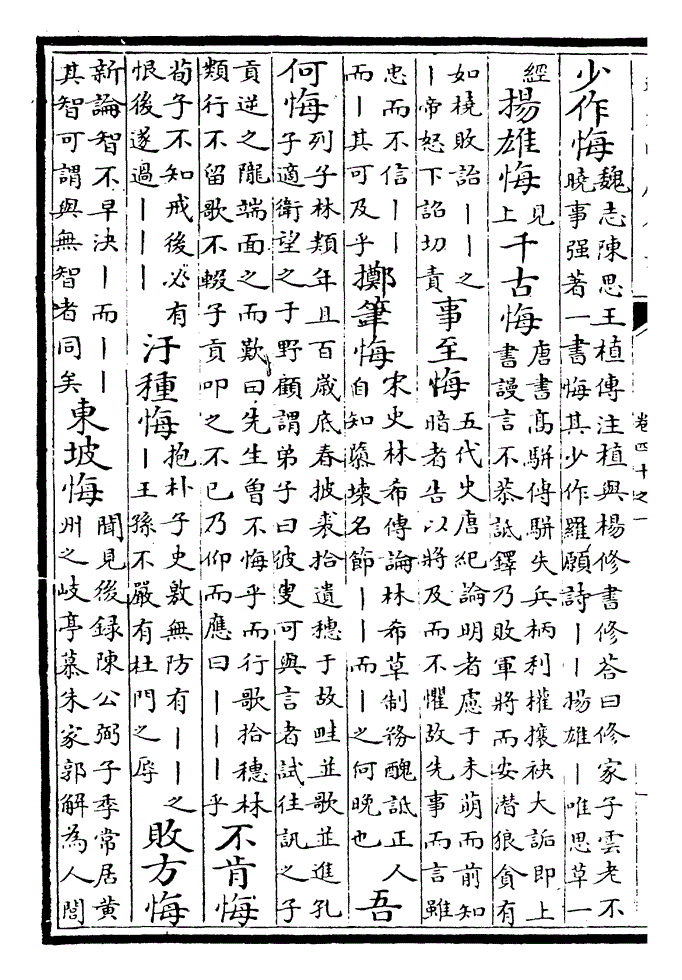 少作悔
魏志陳思王植傳注植與楊修書修荅曰修家子雲老不
曉事强著一書悔其少作羅願詩丨丨揚雄丨唯思草一
經
揚雄悔
見
上
千古悔
唐書高駢傳駢失兵柄利權攘袂大詬即上
書謾言不恭詆鐸乃敗軍將而安潛狼貪有
如橈敗詒丨丨之
丨帝怒下詔切責
事至悔
五代史唐紀論明者慮于未萌而前知
暗者告以將及而不懼故先事而言雖
忠而不信丨丨
而丨其可及乎
擲筆悔
宋史林希傳論林希草制務醜詆正人
自知隳壊名節丨丨而丨之何晚也
吾
何悔
列子林類年且百歲底春披裘拾遺穗于故畦並歌並進孔
子適衛望之于野顧謂弟子曰彼叟可與言者試往訊之子
貢逆之隴端面之而歎曰先生曽不悔乎而行歌拾穗林
類行不留歌不輟子貢叩之不已乃仰而應曰丨丨丨乎
不肯悔
荀子不知戒後必有
恨後遂過丨丨丨
汙種悔
抱朴子史敫無防有丨丨之
丨王孫不嚴有杜門之辱
敗方悔
新論智不早決丨而丨丨
其智可謂與無智者同矣
東坡悔
聞見後録陳公弼子季常居黄
州之岐亭慕朱家郭解為人閭
卷四十之一